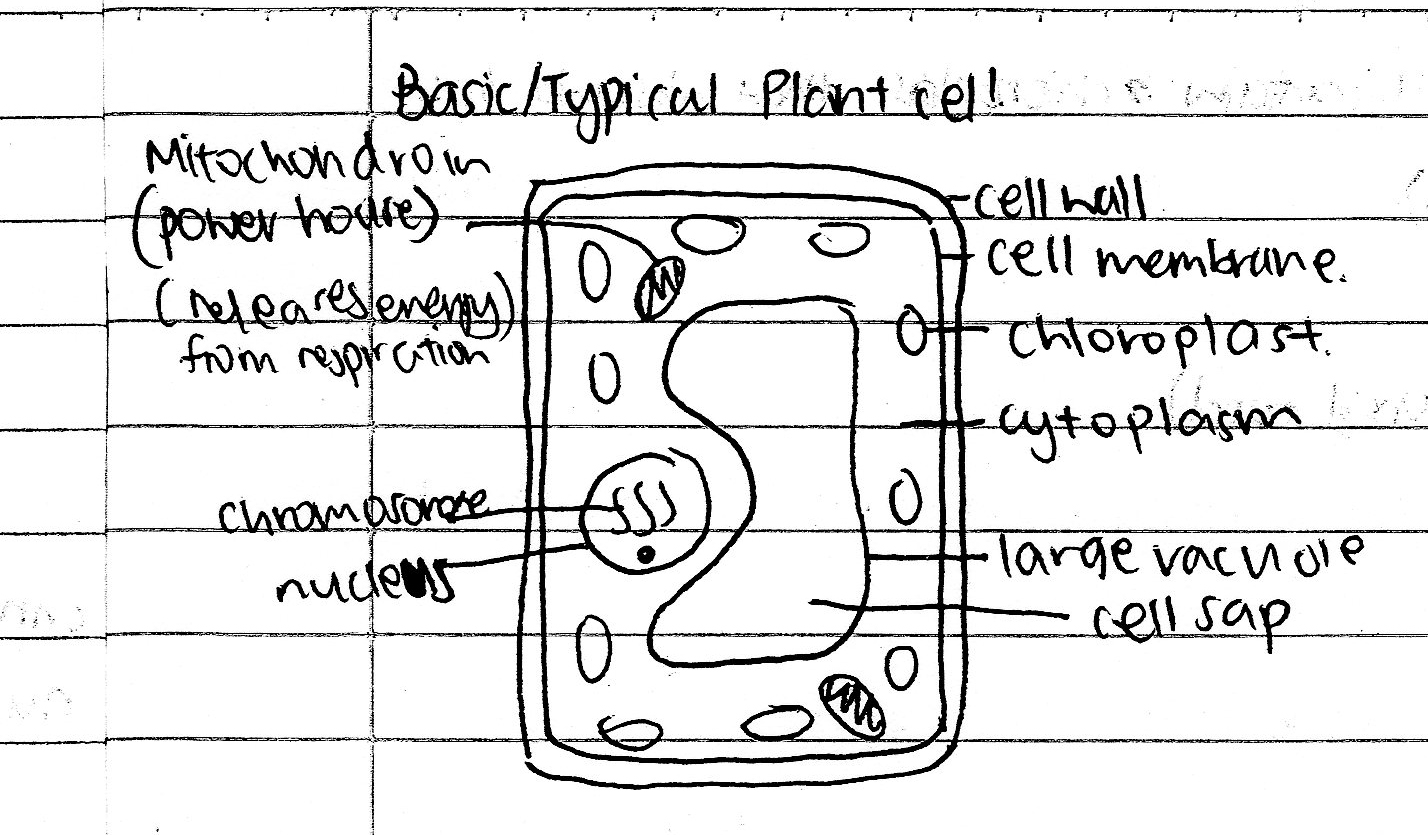 Basic/Typical Plant cell
Mitochondroin
(power house)
(releares energy)
from respiration
chromosome
nucleus
cell wall
cell membrane.
chloroplast.
cytoplasm
large vacuole
cell sap